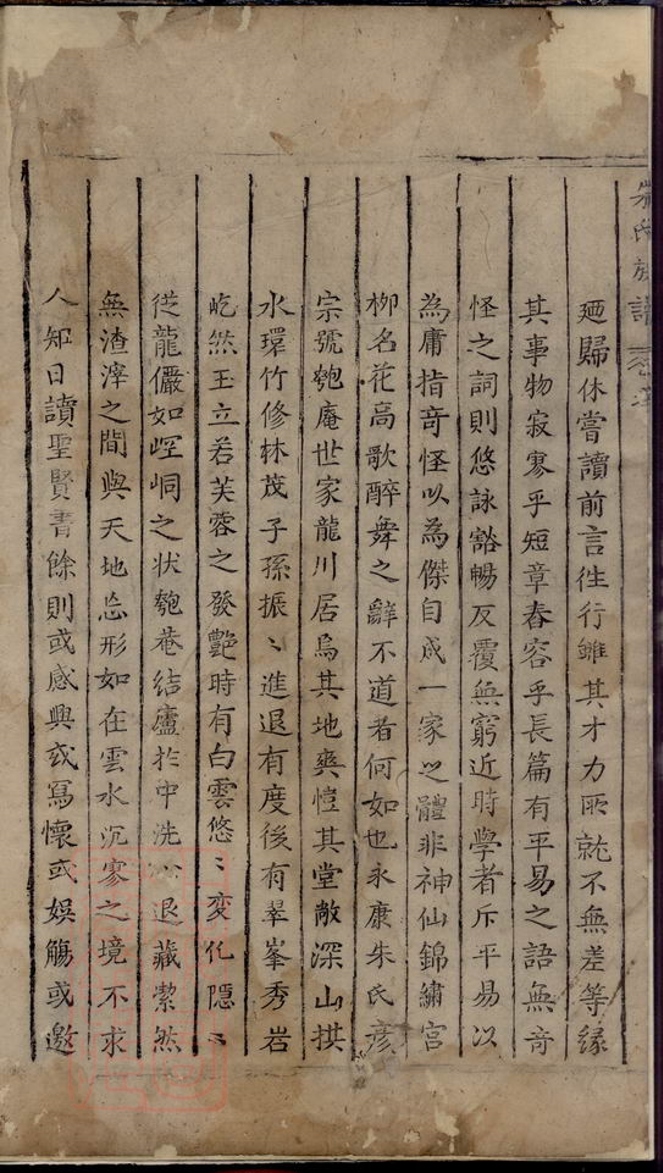 朱氏族譜
廼歸休嘗讀前言徃行雖其才力所就不無差等縁
其事物寂寥乎短章舂容乎長篇有平易之語無竒
怪之詞則悠詠豁暢反覆無窮近時學者斥平易以
為庸指竒怪以為傑自成一家之體非神仙錦繡宮
柳名花高歌醉舞之辭不道者何如也永康朱氏彦
宗號匏庵世家龍川居焉其地爽愷其堂敞深山拱
水環竹修林茂子孫振〻進退有度後有翠峯秀岩
屹然玉立若芙蓉之發艷時有白雲悠〻变化隱〻
從龍儼如崆峒之状匏菴结廬扵中洗心退藏潔然
無渣滓之間與天地忘形如在雲水沉寥之境不求
人知日讀聖賢書餘則或感興或寫懐或娯觴或邀